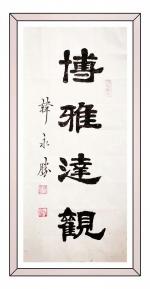 博雅達觀
韓永勝